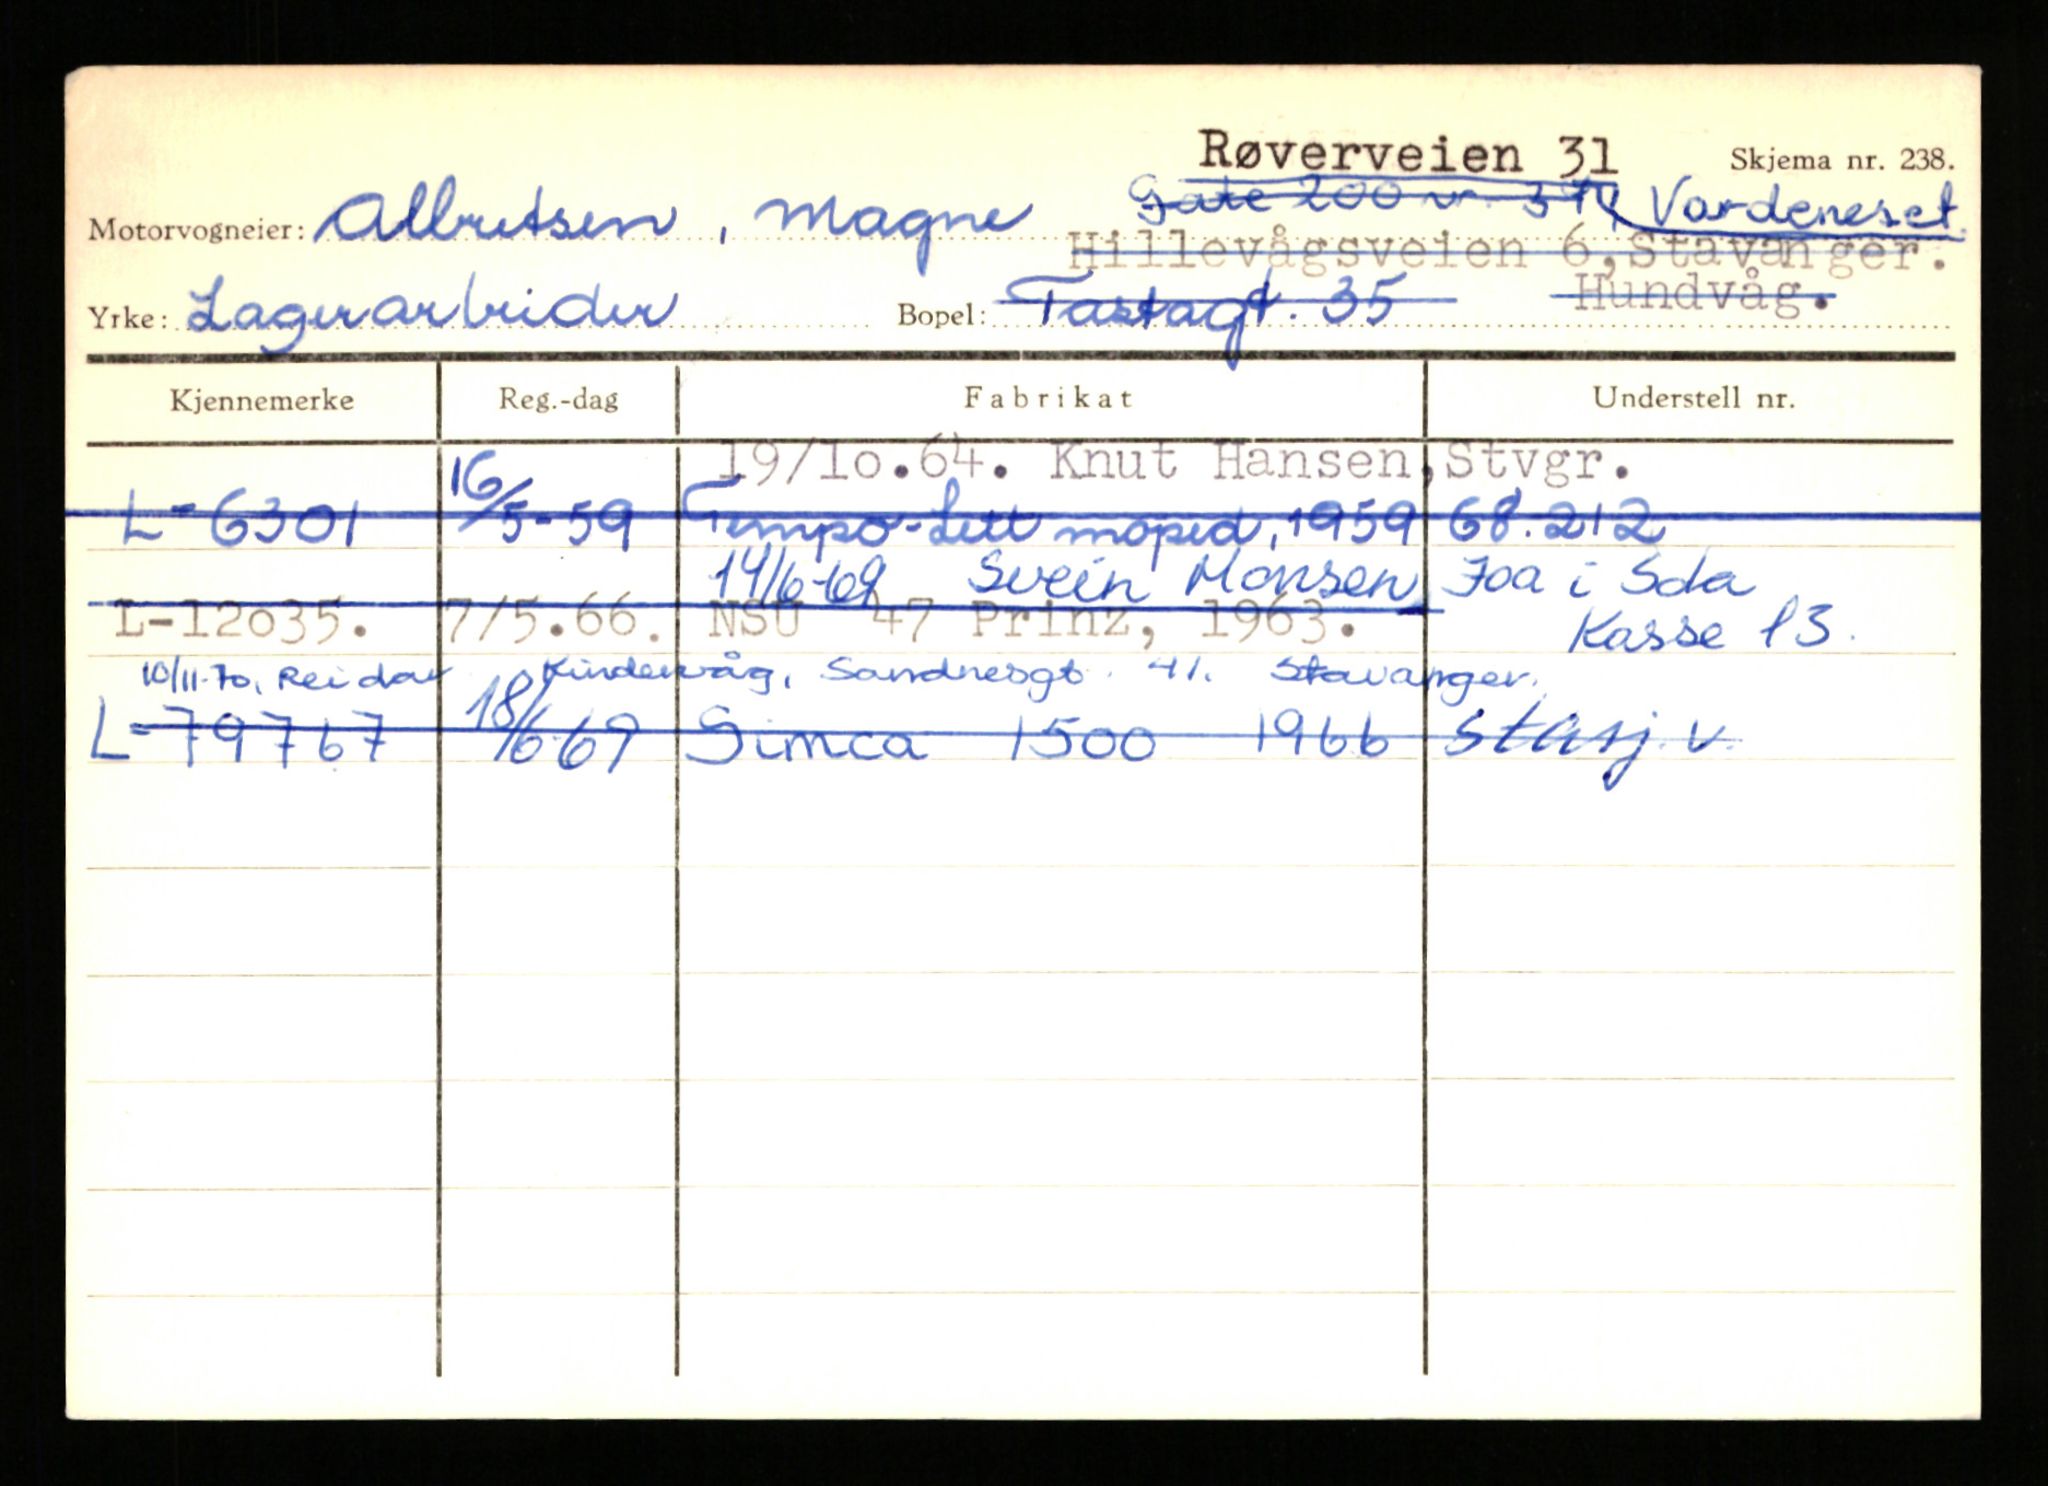 Røverveien 31 Skjema nr. 238.
Gate 200 nr. 374 Vardeneset
Motorvogneier: Albretsen, Magne
Hillevågsveien 6, Stavanger.
Hundvåg.
Yrke: Lagerarbeider Bopel: Tastagt. 35
Kjennemerke Reg.-dag Fabrikat Understell nr.
19/10.64. Knut Hansen, Stvgr.
L-6301 16/5-59 Tempo-Lett moped, 1959 68.212
14/6-69 Svein Monsen Joa i Sola
L-12035. 7/5.66. NSU 47 Prinz, 1963. Kasse 13.
10/11-70, Reidar Kindervåg, Sandnesgt. 41. Stavanger.
L-79767 18/6-69 Simca 1500 1966 stasj. v.